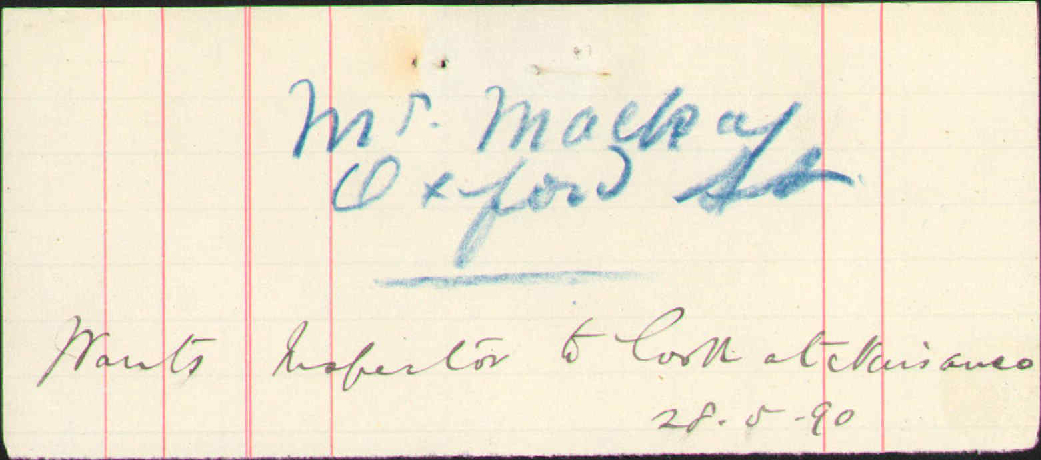 Mr. Mackay
Oxford St
Wants Inspector to look at Nuisance
28.5.90